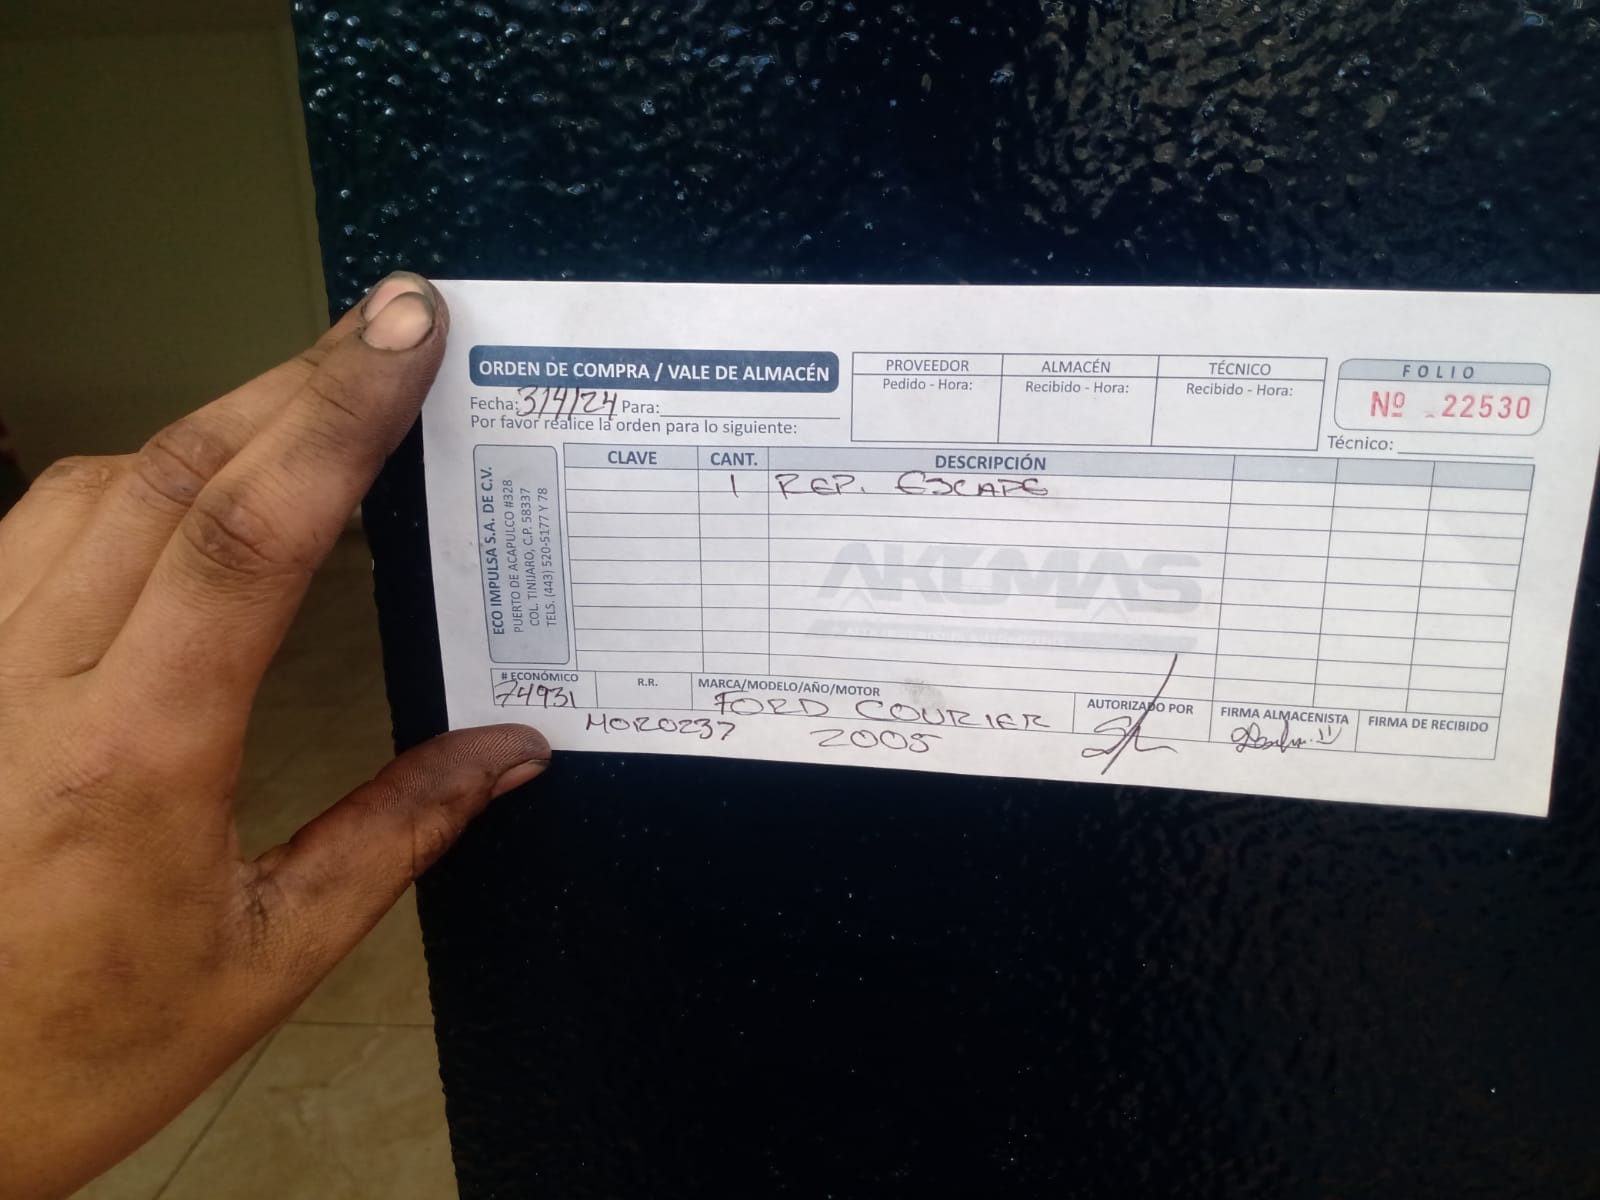 ORDEN DE COMPRA / VALE DE ALMACÉN
Fecha: 3/4/24 Para:
Por favor realice la orden para lo siguiente:
PROVEEDOR ALMACÉN TÉCNICO
Pedido - Hora: Recibido - Hora: Recibido - Hora:
FOLIO
Nº 22530
Técnico:
ECO IMPULSA S.A. DE C.V.
PUERTO DE ACAPULCO #328
COL. TINIJARO, C.P. 58337
TELS. (443) 520-5177 Y 78
CLAVE CANT. DESCRIPCIÓN
1 REP. ESCAPE
AKOMAS
# ECONÓMICO R.R. MARCA/MODELO/AÑO/MOTOR AUTORIZADO POR FIRMA ALMACENISTA FIRMA DE RECIBIDO
74931 FORD COURIER
MOR0237 2005